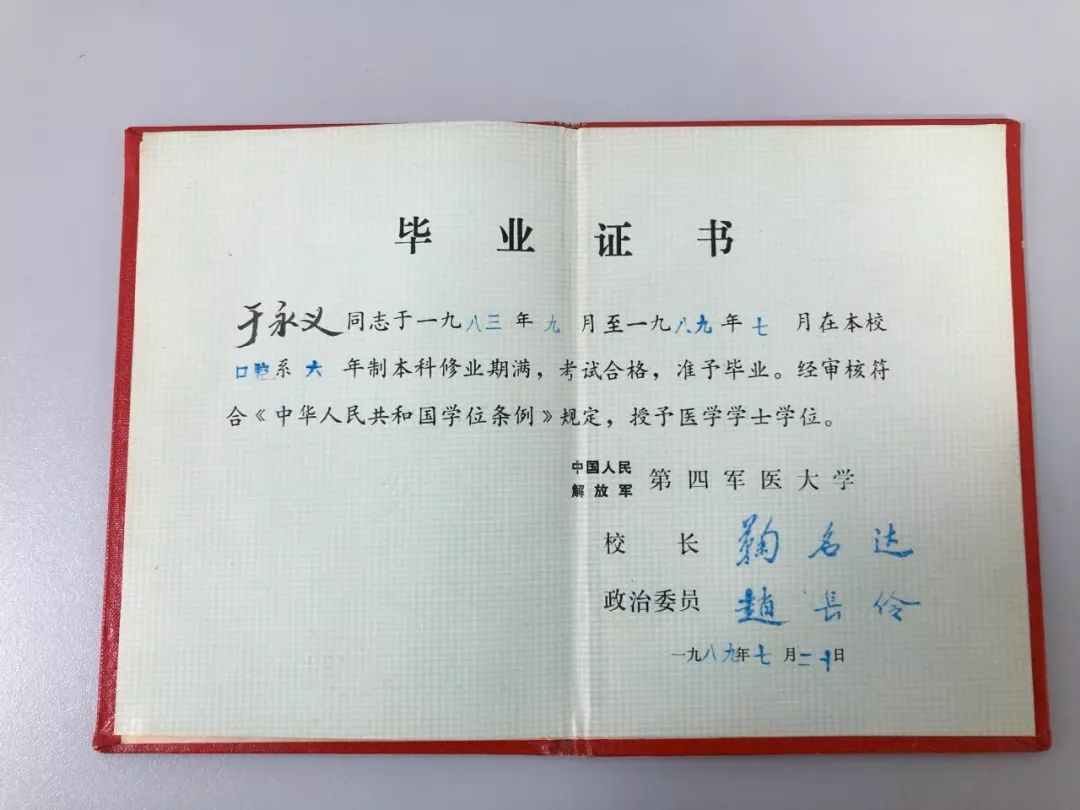 毕业证书
于永义同志于一九八三年九月至一九八九年七月在本校
口腔系六年制本科修业期满，考试合格，准予毕业。经审核符
合《中华人民共和国学位条例》规定，授予医学学士学位。
中国人民
解放军 第四军医大学
校长 鞠名达
政治委员 赵长伶
一九八九年七月二十日